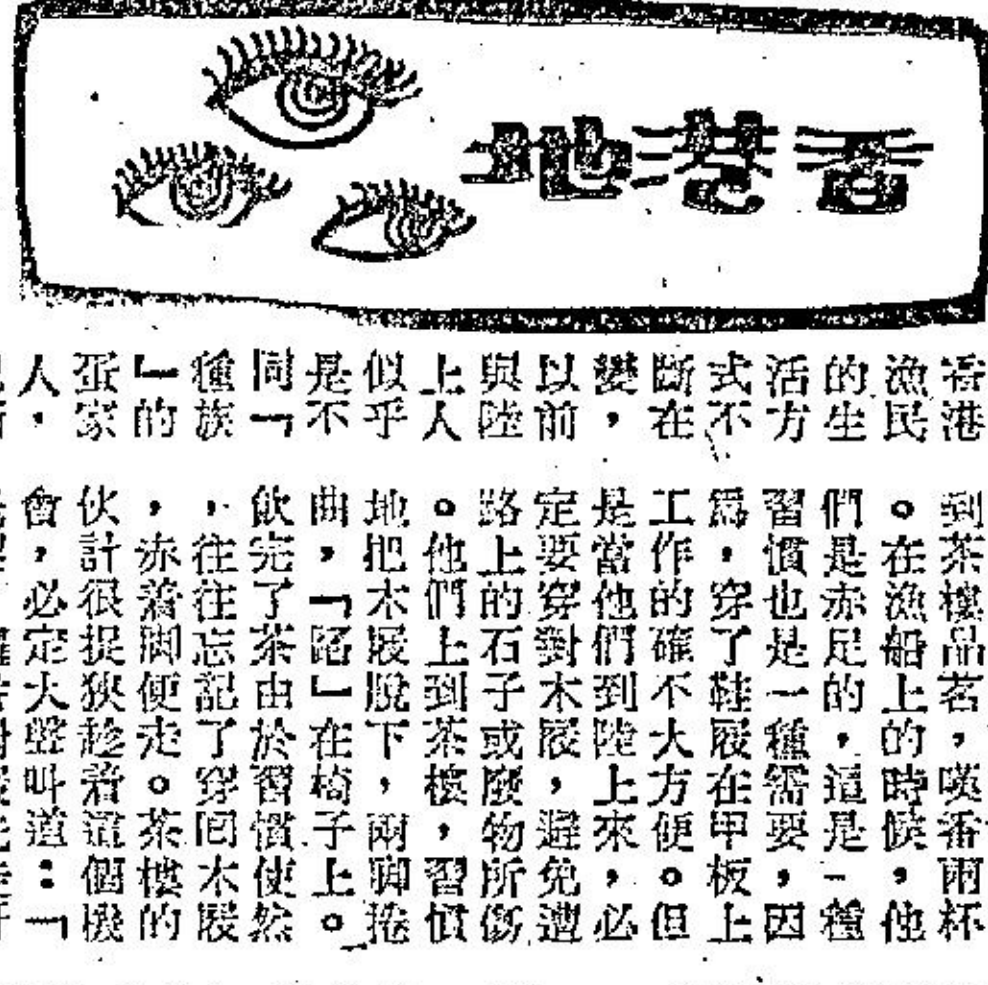 香港地
香港
漁民
的生
活方
式不
斷在
變，
以前
與陸
上人
似乎
是不
同「
種族
」的
蛋家
人，
到茶樓品茗，嘆番兩杯
。在漁船上的時候，他
們是赤足的，這是一種
習慣也是一種需要，因
爲，穿了鞋屐在甲板上
工作的確不大方便。但
是當他們到陸上來，必
定要穿對木屐，避免遭
路上的石子或廢物所傷
。他們上到茶樓，習慣
地把木屐脫下，兩脚捲
曲，「踎」在椅子上。
飲完了茶由於習慣使然
，往往忘記了穿囘木屐
，赤着脚便走。茶樓的
伙計很捉狹趁着這個機
會，必定大聲叫道：「